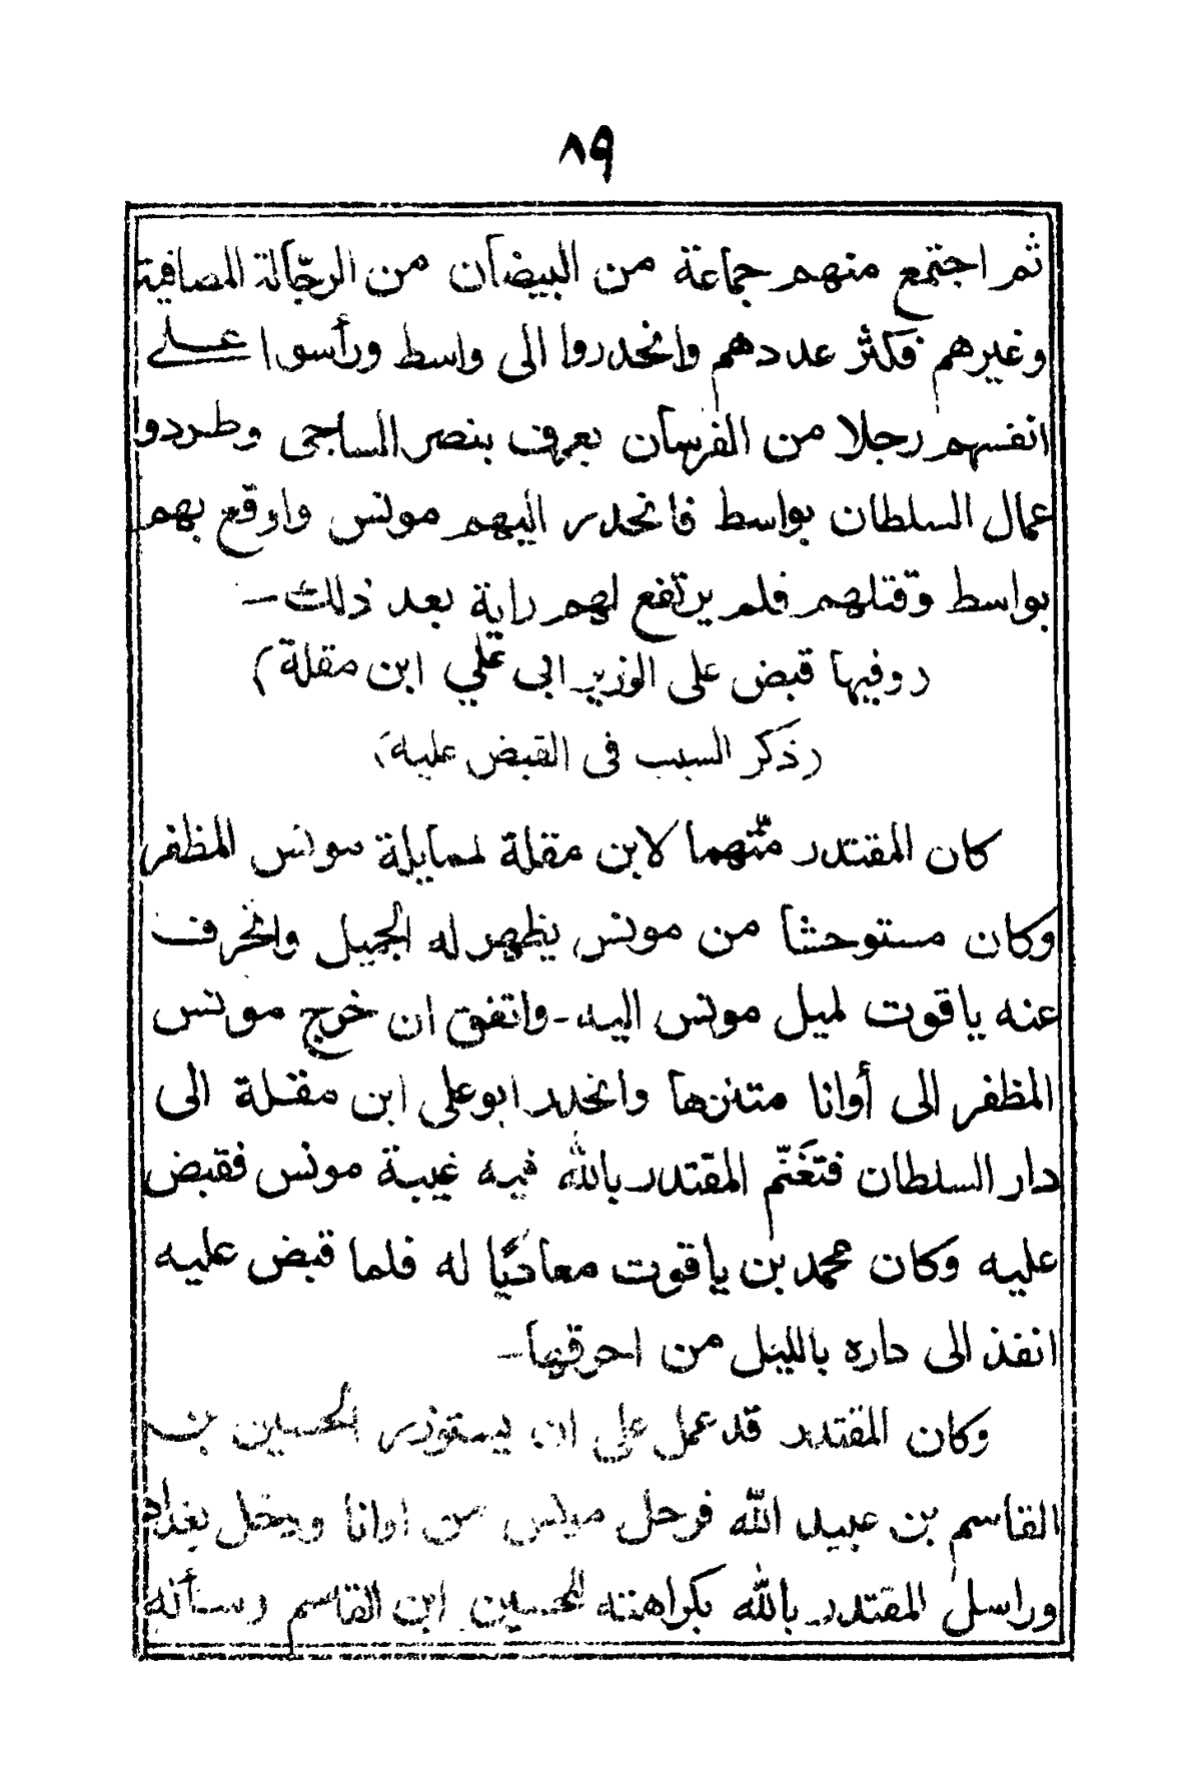 ٨٩
ثم اجتمع منهم جماعة من البيضان من الرجّالة المصافية
وغيرهم فكثر عددهم وانحدروا الى واسط ورأسوا على
انفسهم رجلا من الفرسان يعرف بنصر الساجى وطردوا
عمال السلطان بواسط فانحدر اليهم مونس واوقع بهم
بواسط وقتلهم فلم يرتفع لهم راية بعد ذلك -
(وفيها قبض على الوزير ابى علي ابن مقلة)
(ذكر السبب فى القبض عليه)
كان المقتدر متّهما لابن مقلة لممايلة مونس المظفر
وكان مستوحشا من مونس يظهر له الجميل وانحرف
عنه ياقوت لميل مونس اليه - واتفق ان خرج مونس
المظفر الى أوانا متنزها وانحدر ابو على ابن مقلة الى
دار السلطان فتغنّم المقتدر بالله فيه غيبة مونس فقبض
عليه وكان محمد بن ياقوت معاديًا له فلما قبض عليه
انفذ الى داره بالليل من احرقها -
وكان المقتدر قد عمل على ان يستوزر الحسين بن
القاسم بن عبيد الله فرحل مونس من اوانا ودخل بغداد
وراسل المقتدر بالله بكراهته للحسين ابن القاسم وسأله